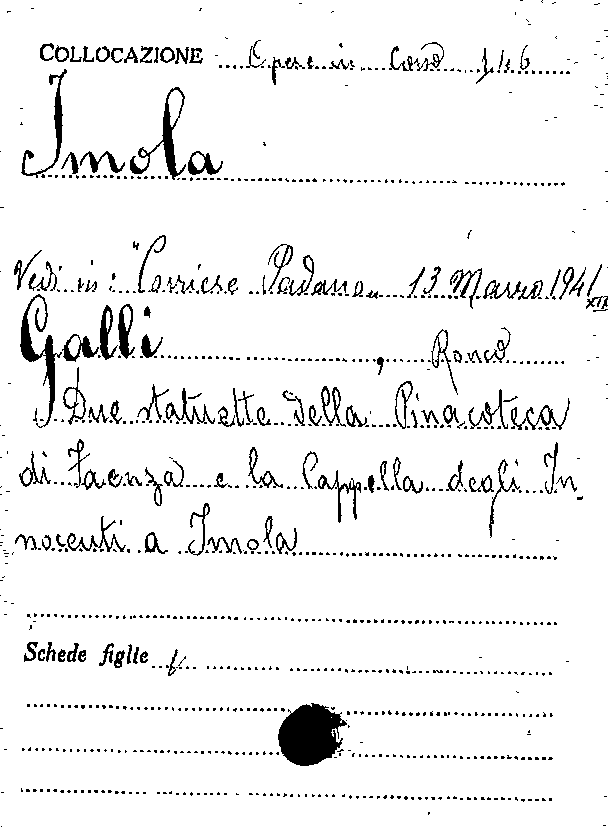 COLLOCAZIONE Opere in Corso 1/46
Imola
Vedi in: "Corriere Padano„ 13 Marzo 1941 XIX
Galli, Romeo
Due statuette della Pinacoteca
di Faenza e la Cappella degli In-
nocenti a Imola
Schede figlie 1